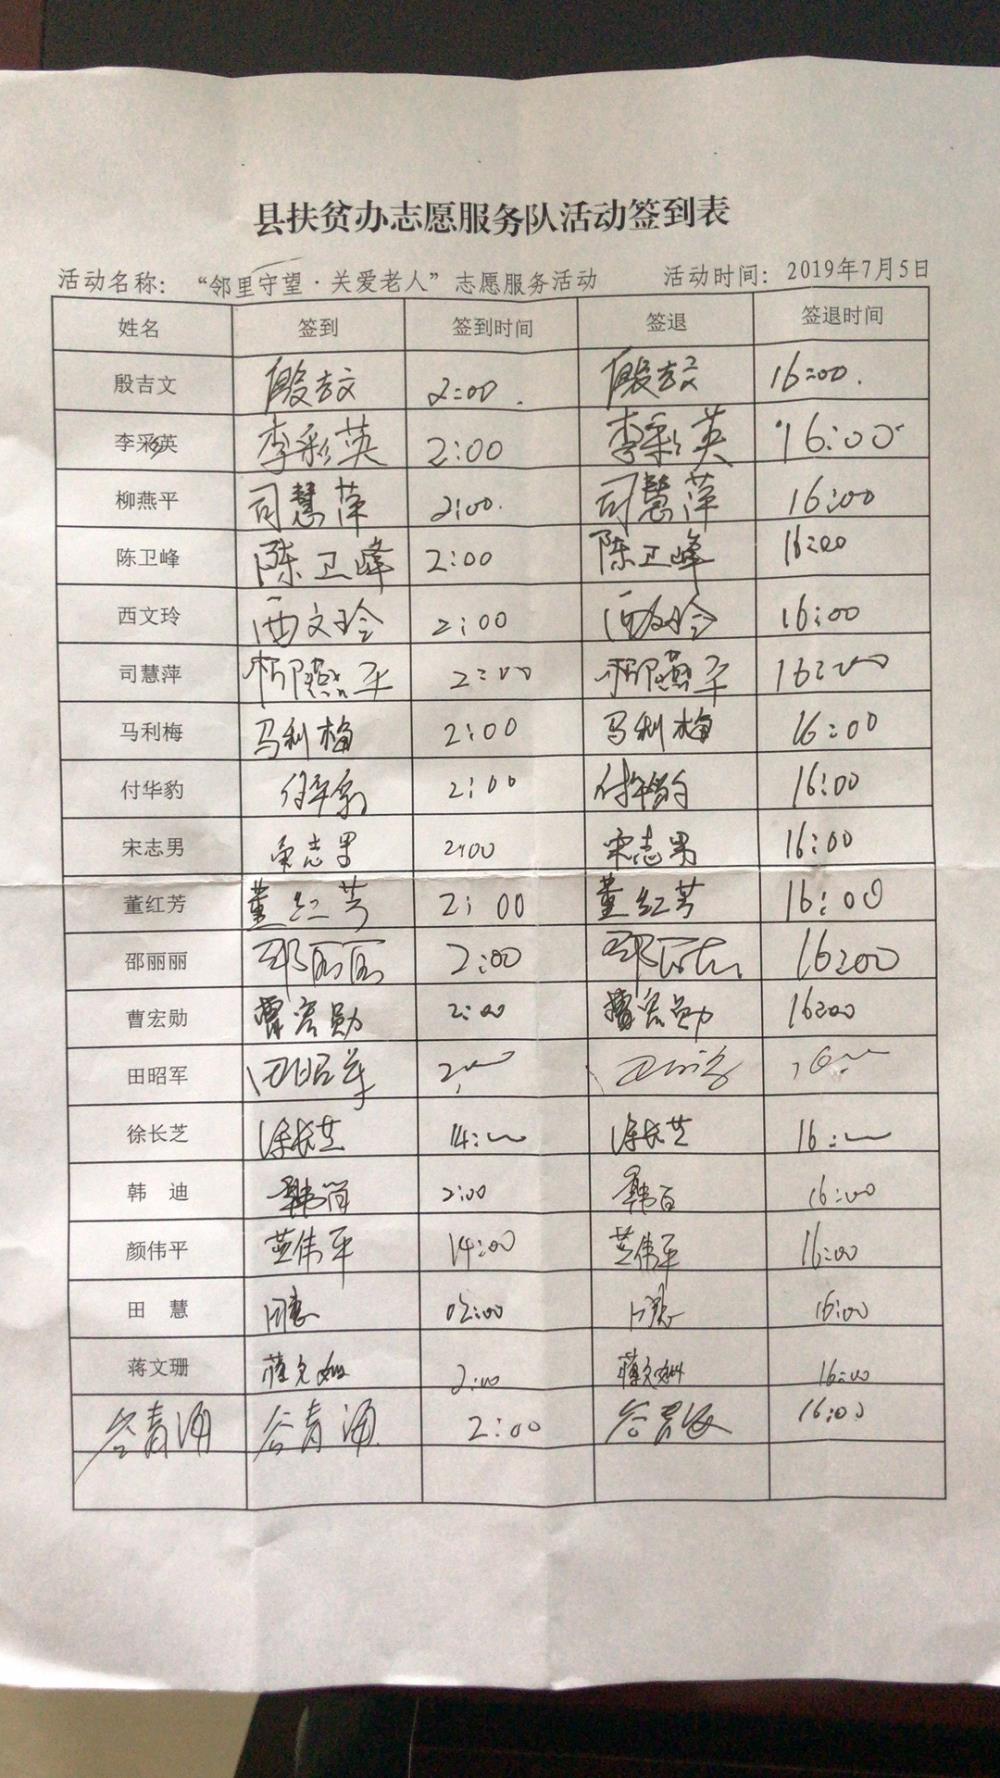 县扶贫办志愿服务队活动签到表
活动名称：“邻里守望·关爱老人”志愿服务活动 活动时间：2019年7月5日
姓名 签到 签到时间 签退 签退时间
殷吉文 殷吉文 2:00. 殷吉文 16:00.
李彩英 李彩英 2:00 李彩英 16:00
柳燕平 司慧萍 2:00. 司慧萍 16:00
陈卫峰 陈卫峰 2:00 陈卫峰 16:00
西文玲 西文玲 2:00 西文玲 16:00
司慧萍 柳燕平 2:00 柳燕平 16:00
马利梅 马利梅 2:00 马利梅 16:00
付华豹 付华豹 2:00 付华豹 16:00
宋志男 宋志男 2:00 宋志男 16:00
董红芳 董红芳 2:00 董红芳 16:00
邵丽丽 邵丽丽 2:00 邵丽丽 16:00
曹宏勋 曹宏勋 2:00 曹宏勋 16:00
田昭军 田昭军 2:00 16:00
徐长芝 徐长芝 14:00 徐长芝 16:00
韩 迪 2:00 16:00
颜伟平 14:00 16:00
田 慧 田慧 02:00 田慧 16:00
蒋文珊 蒋文珊 2:00 蒋文珊 16:00
谷青 谷青 2:00 谷青 16:00